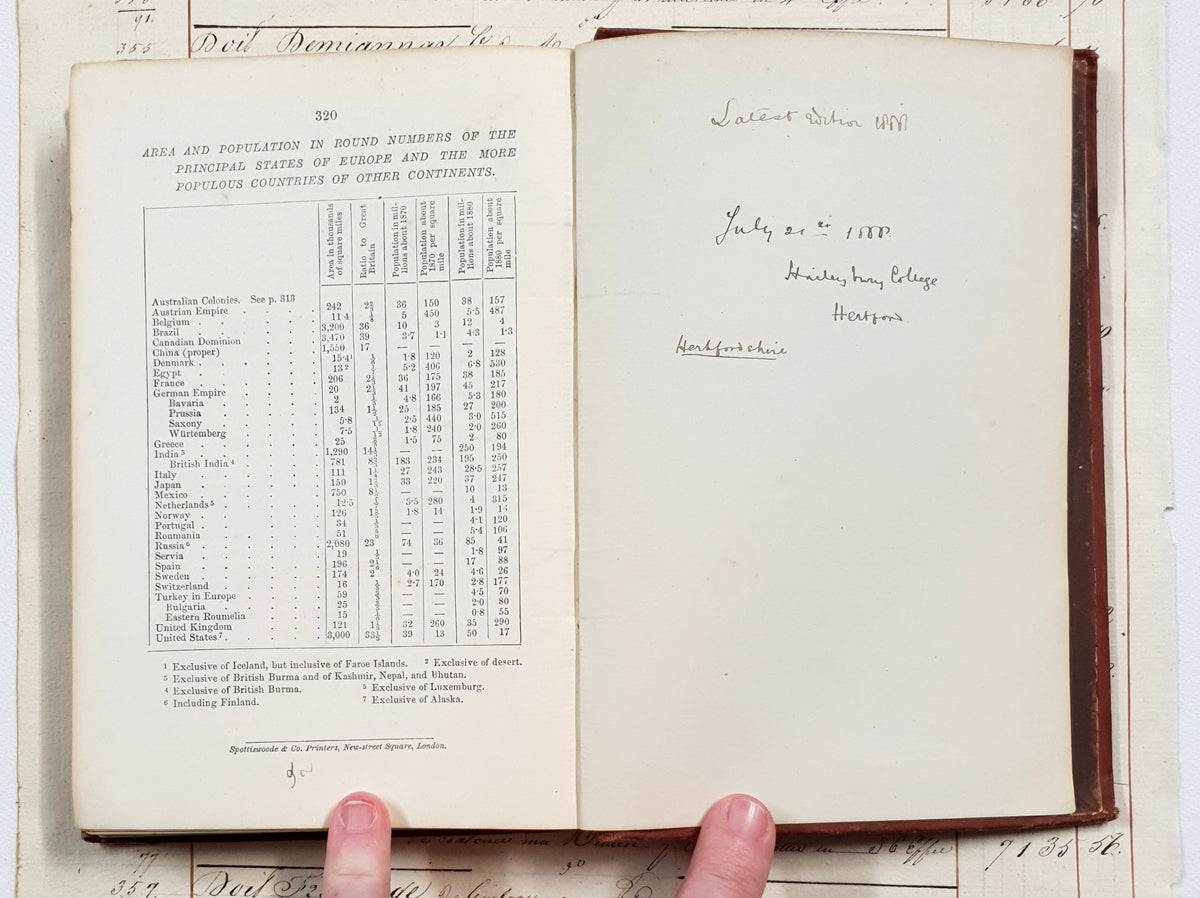 355 Doit Demiannay
320
AREA AND POPULATION IN ROUND NUMBERS OF THE
PRINCIPAL STATES OF EUROPE AND THE MORE
POPULOUS COUNTRIES OF OTHER CONTINENTS.
Area in thousands of square miles
Ratio to Great Britain
Population in millions about 1870
Population about 1870 per square mile
Population in millions about 1880
Population about 1880 per square mile
Australian Colonies. See p. 313
Austrian Empire 242 2⅔ 36 150 38 157
Belgium 11·4 ⅛ 5 450 5·5 487
Brazil 3,200 36 10 3 12 4
Canadian Dominion 3,470 39 3·7 1·1 4·3 1·3
China (proper) 1,550 17 — — — —
Denmark 15·4¹ ⅙ 1·8 120 2 128
Egypt 13² 5·2 406 6·8 530
France 206 2⅓ 36 175 38 185
German Empire 20 2⅓ 41 197 45 217
Bavaria 2 4·8 166 5·3 180
Prussia 134 1½ 25 185 27 200
Saxony 5·8 1/15 2·5 440 3·0 515
Württemberg 7·5 1/12 1·8 240 2·0 260
Greece 25 1·5 75 2 80
India³ 1,290 14⅓ — — 250 194
British India⁴ 781 8⅔ 183 234 195 250
Italy 111 1¼ 27 243 28·5 257
Japan 150 1⅔ 33 220 37 247
Mexico 750 8⅓ — — 10 13
Netherlands⁵ 12·5 3·5 280 4 315
Norway 126 1·8 14 1·9 14
Portugal 34 — — 4·1 120
Roumania 51 — — 5·4 106
Russia⁶ 2,080 23 74 36 85 41
Servia 19 — — 1·8 97
Spain 196 2⅙ — — 17 88
Sweden 174 2 4·0 24 4·6 26
Switzerland 16 2·7 170 2·8 177
Turkey in Europe 59 — — 4·5 70
Bulgaria 25 — — 2·0 80
Eastern Roumelia 15 — — 0·8 55
United Kingdom 121 1⅓ 32 260 35 290
United States⁷ 3,000 33⅓ 39 13 50 17
¹ Exclusive of Iceland, but inclusive of Faroe Islands. ² Exclusive of desert.
³ Exclusive of British Burma and of Kashmir, Nepal, and Bhutan.
⁴ Exclusive of British Burma. ⁵ Exclusive of Luxemburg.
⁶ Including Finland. ⁷ Exclusive of Alaska.
Spottiswoode & Co. Printers, New-street Square, London.
Latest edition 1888
July 21st 1888.
Haileybury College
Hertford.
Hertfordshire
71 35 56.
357. Doit